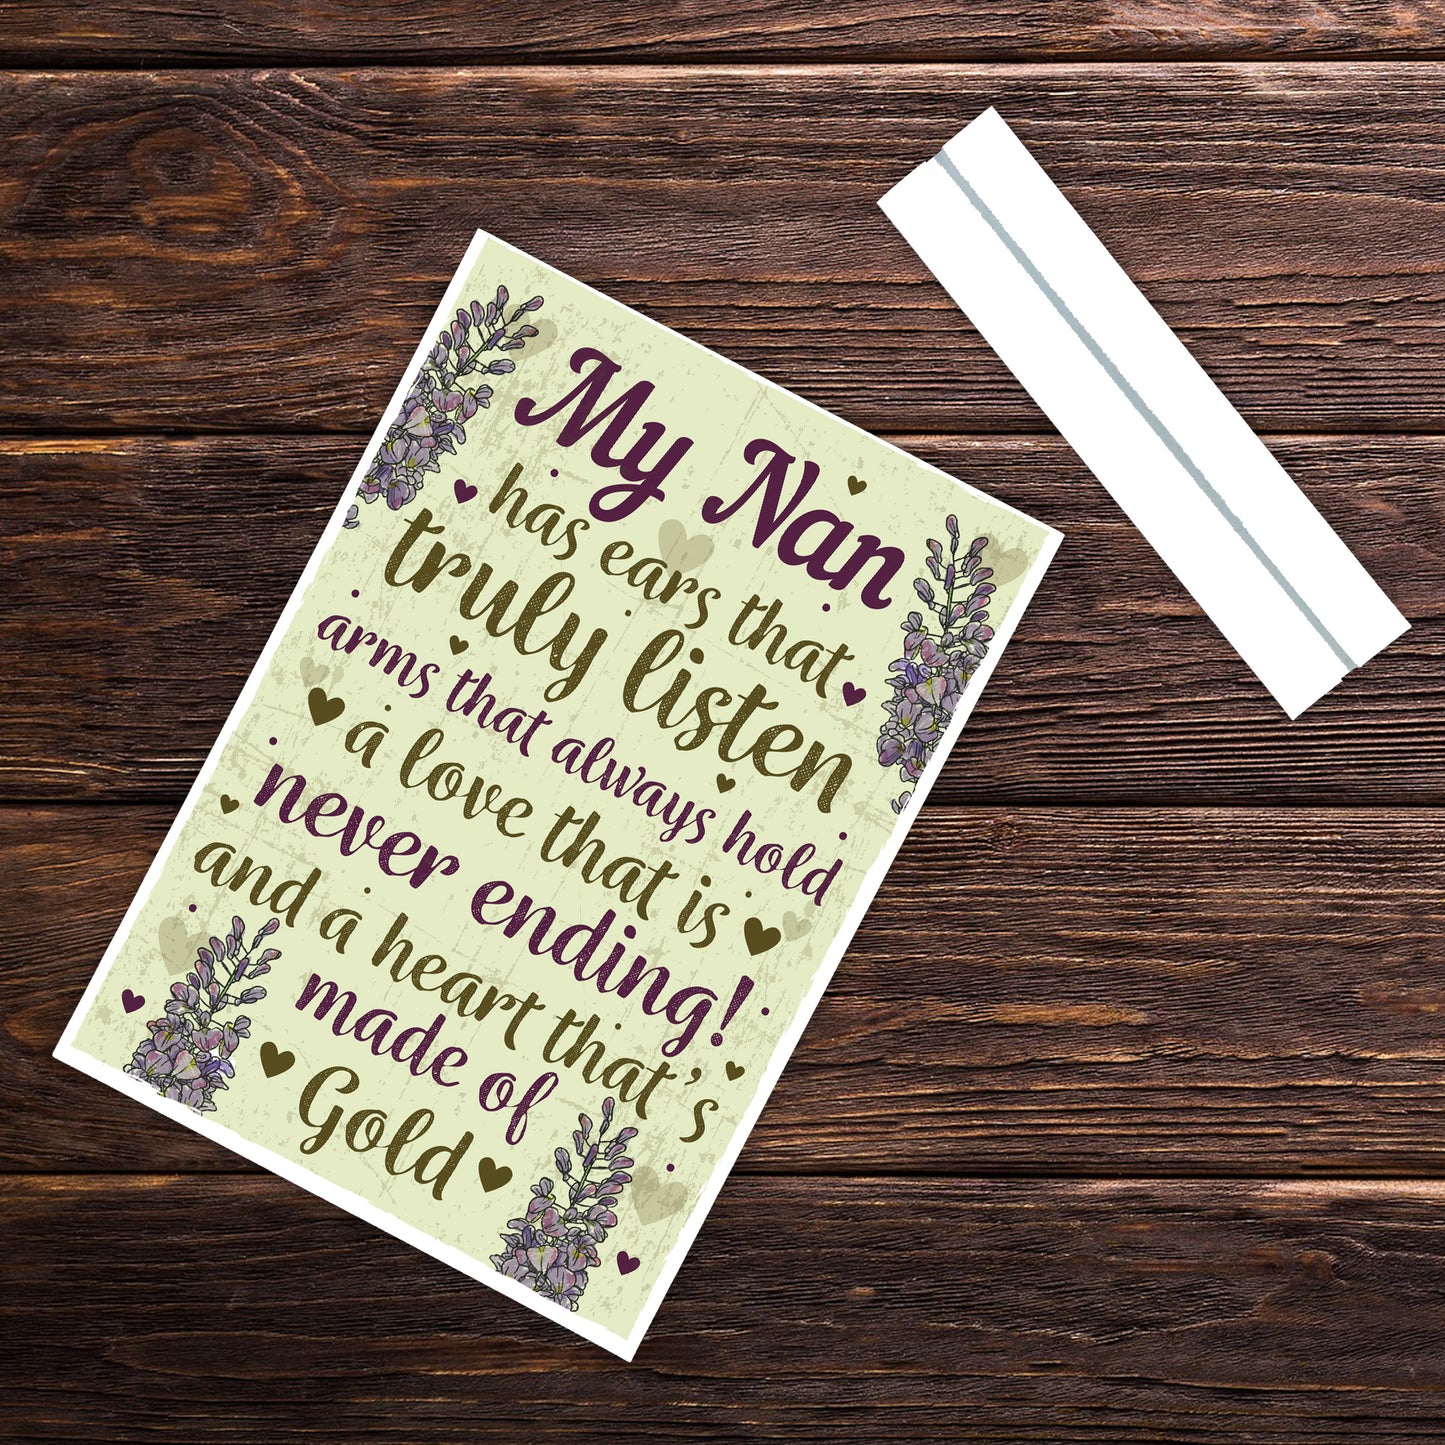 My Nan
has ears that
truly listen
arms that always hold
a love that is
never ending!
and a heart that's
made of
Gold